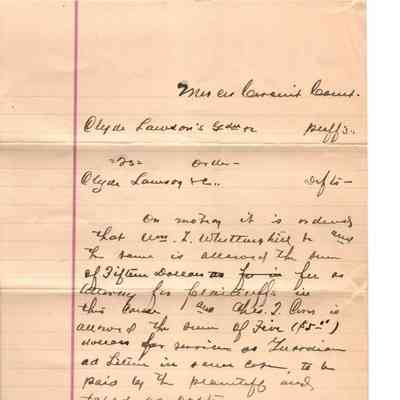 Circuit Court.
Clyde Lawson's Gdn &c Plffs.
=vs= Order—
Clyde Lawson &c.. Defts—
On motion it is ordered
that Wm. L. Whittinghill be and
the same is allowed the sum
of Fifteen Dollars as fee as
Attorney for plaintiffs in
this cause and Chas. is
allowed the sum of Five ($5.00)
dollars for services as Guardian
ad Litem in same case, to be
paid by the plaintiffs and
taxed as